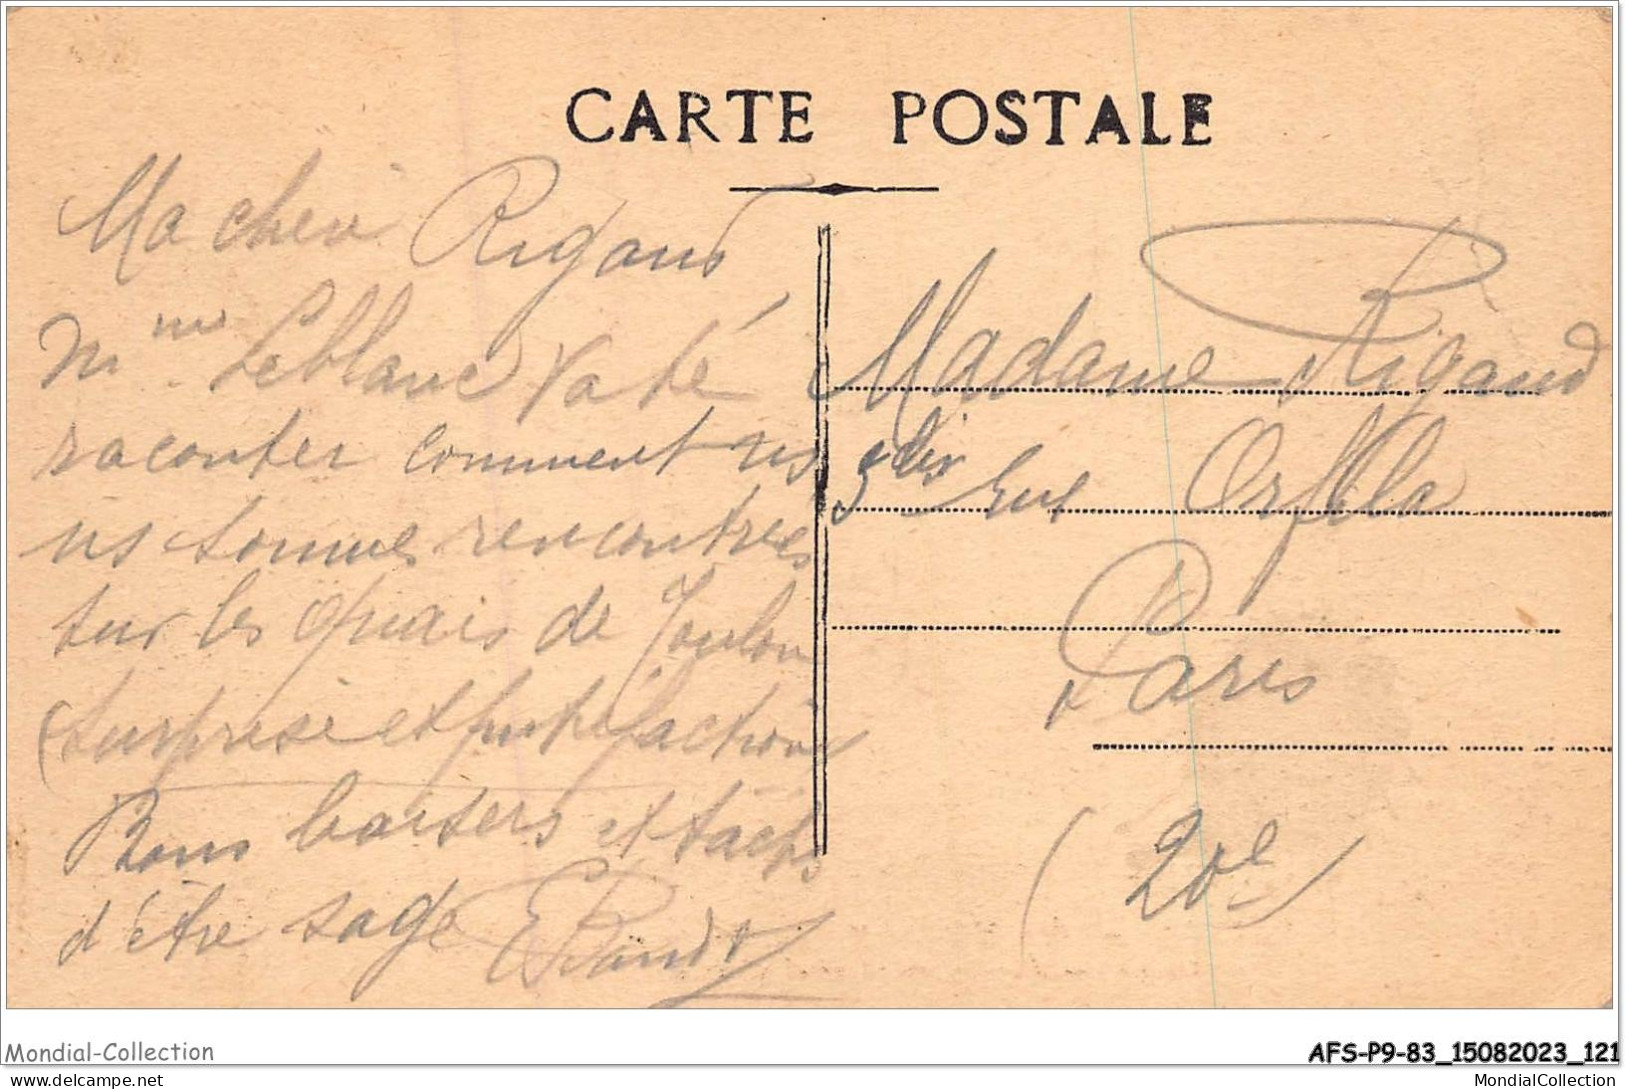 CARTE POSTALE
Ma cher Rigaud
Mme Leblanc Va te
raconter comment ns
ns sommes rencontrées
sur les quais de Toulon
(surprise et putréfaction
Bons baisers et tachs
d'être sage
Madame Rigaud
5 bis Rue Orfila
Paris
(20e)
Mondial-Collection
AFS-P9-83_15082023_121
delcampe.net
MondialCollection